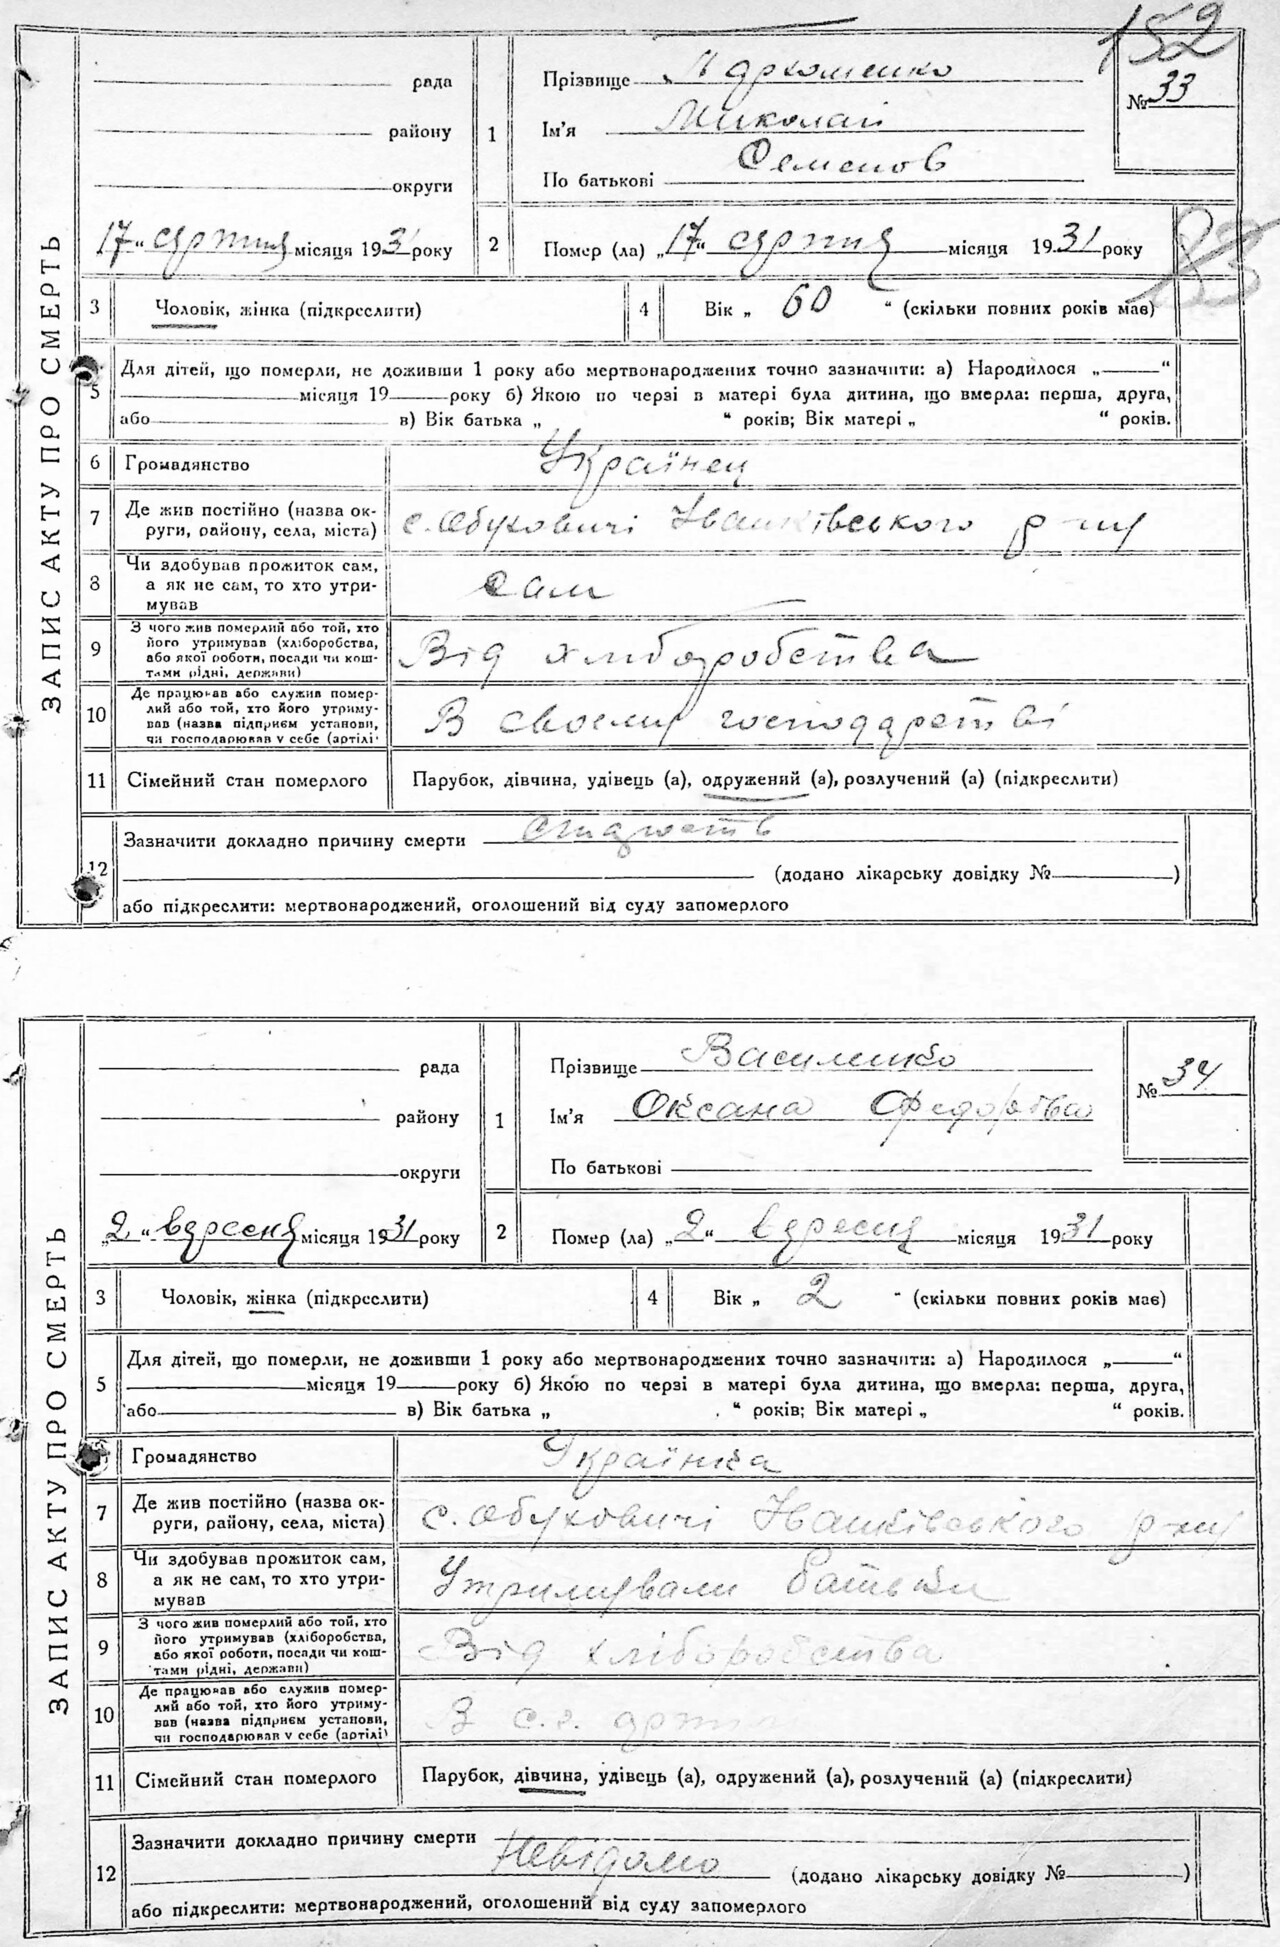 152
ЗАПИС АКТУ ПРО СМЕРТЬ
рада
району
округи
„17“ серпня місяця 1931 року
1
Прізвище Пархоменко
Ім'я Миколай
По батькові Семенов
№ 33
2 Помер (ла) „17“ серпня місяця 1931 року
83
3 Чоловік, жінка (підкреслити)
4 Вік „ 60 “ (скільки повних років має)
5 Для дітей, що померли, не доживши 1 року або мертвонароджених точно зазначити: а) Народилося „ “
місяця 19 року б) Якою по черзі в матері була дитина, що вмерла: перша, друга,
або в) Вік батька „ “ років; Вік матері „ “ років.
6 Громадянство Українец
7 Де жив постійно (назва округи, району, села, міста) с. Обуховичі Іванківського р-ну
8 Чи здобував прожиток сам, а як не сам, то хто утримував сам
9 З чого жив померлий або той, хто його утримував (хліборобства, або якої роботи, посади чи коштами рідні, держави) Від хліборобства
10 Де працював або служив померлий або той, хто його утримував (назва підприєм установи, чи господарював у себе (артілі) В своєму господарстві
11 Сімейний стан померлого Парубок, дівчина, удівець (а), одружений (а), розлучений (а) (підкреслити)
12 Зазначити докладно причину смерти старость
(додано лікарську довідку № )
або підкреслити: мертвонароджений, оголошений від суду запомерлого
ЗАПИС АКТУ ПРО СМЕРТЬ
рада
району
округи
„2“ вересня місяця 1931 року
1
Прізвище Василенко
Ім'я Оксана Федорівна
По батькові
№ 34
2 Помер (ла) „2“ вересня місяця 1931 року
3 Чоловік, жінка (підкреслити)
4 Вік „ 2 “ (скільки повних років має)
5 Для дітей, що померли, не доживши 1 року або мертвонароджених точно зазначити: а) Народилося „ “
місяця 19 року б) Якою по черзі в матері була дитина, що вмерла: перша, друга,
або в) Вік батька „ “ років; Вік матері „ “ років.
Громадянство Українка
7 Де жив постійно (назва округи, району, села, міста) с. Обуховичі Іванківського р-ну
8 Чи здобував прожиток сам, а як не сам, то хто утримував Утримували батьки
9 З чого жив померлий або той, хто його утримував (хліборобства, або якої роботи, посади чи коштами рідні, держави) Від хліборобства
10 Де працював або служив померлий або той, хто його утримував (назва підприєм установи, чи господарював у себе (артілі) В с.г.
11 Сімейний стан померлого Парубок, дівчина, удівець (а), одружений (а), розлучений (а) (підкреслити)
12 Зазначити докладно причину смерти
Невідомо (додано лікарську довідку № )
або підкреслити: мертвонароджений, оголошений від суду запомерлого